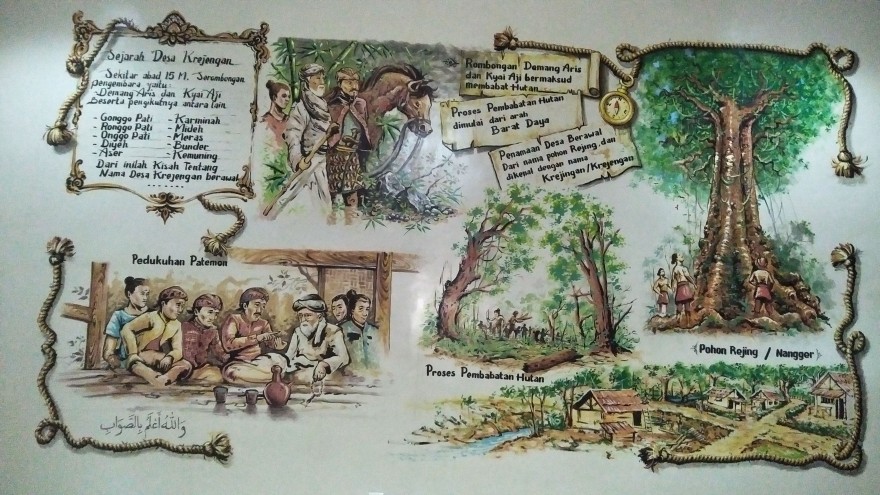 Sejarah Desa Krejengan
Sekitar abad 15 M. Serombongan
pengembara yaitu
Demang Aris dan Kyai Aji
Beserta pengikutnya antara lain
- Gonggo Pati - Karminah
- Ronggo Pati - Mideh
- Onggo Pati - Meras
- Diyeh - Bunder
- Aser - Kemuning
Dari inilah Kisah Tentang
Nama Desa Krejengan berawal
.......
Rombongan Demang Aris
dan Kyai Aji bermaksud
membabat Hutan
Proses Pembabatan Hutan
dimulai dari arah
Barat Daya
Penamaan Desa Berawal
Dari nama pohon Rejing, dan
dikenal dengan nama
Krejingan/Krejengan
Pedukuhan Patemon
Pohon Rejing / Nangger
Proses Pembabatan Hutan
وَاللهُ أَعْلَمُ بِالصَّوَابِ